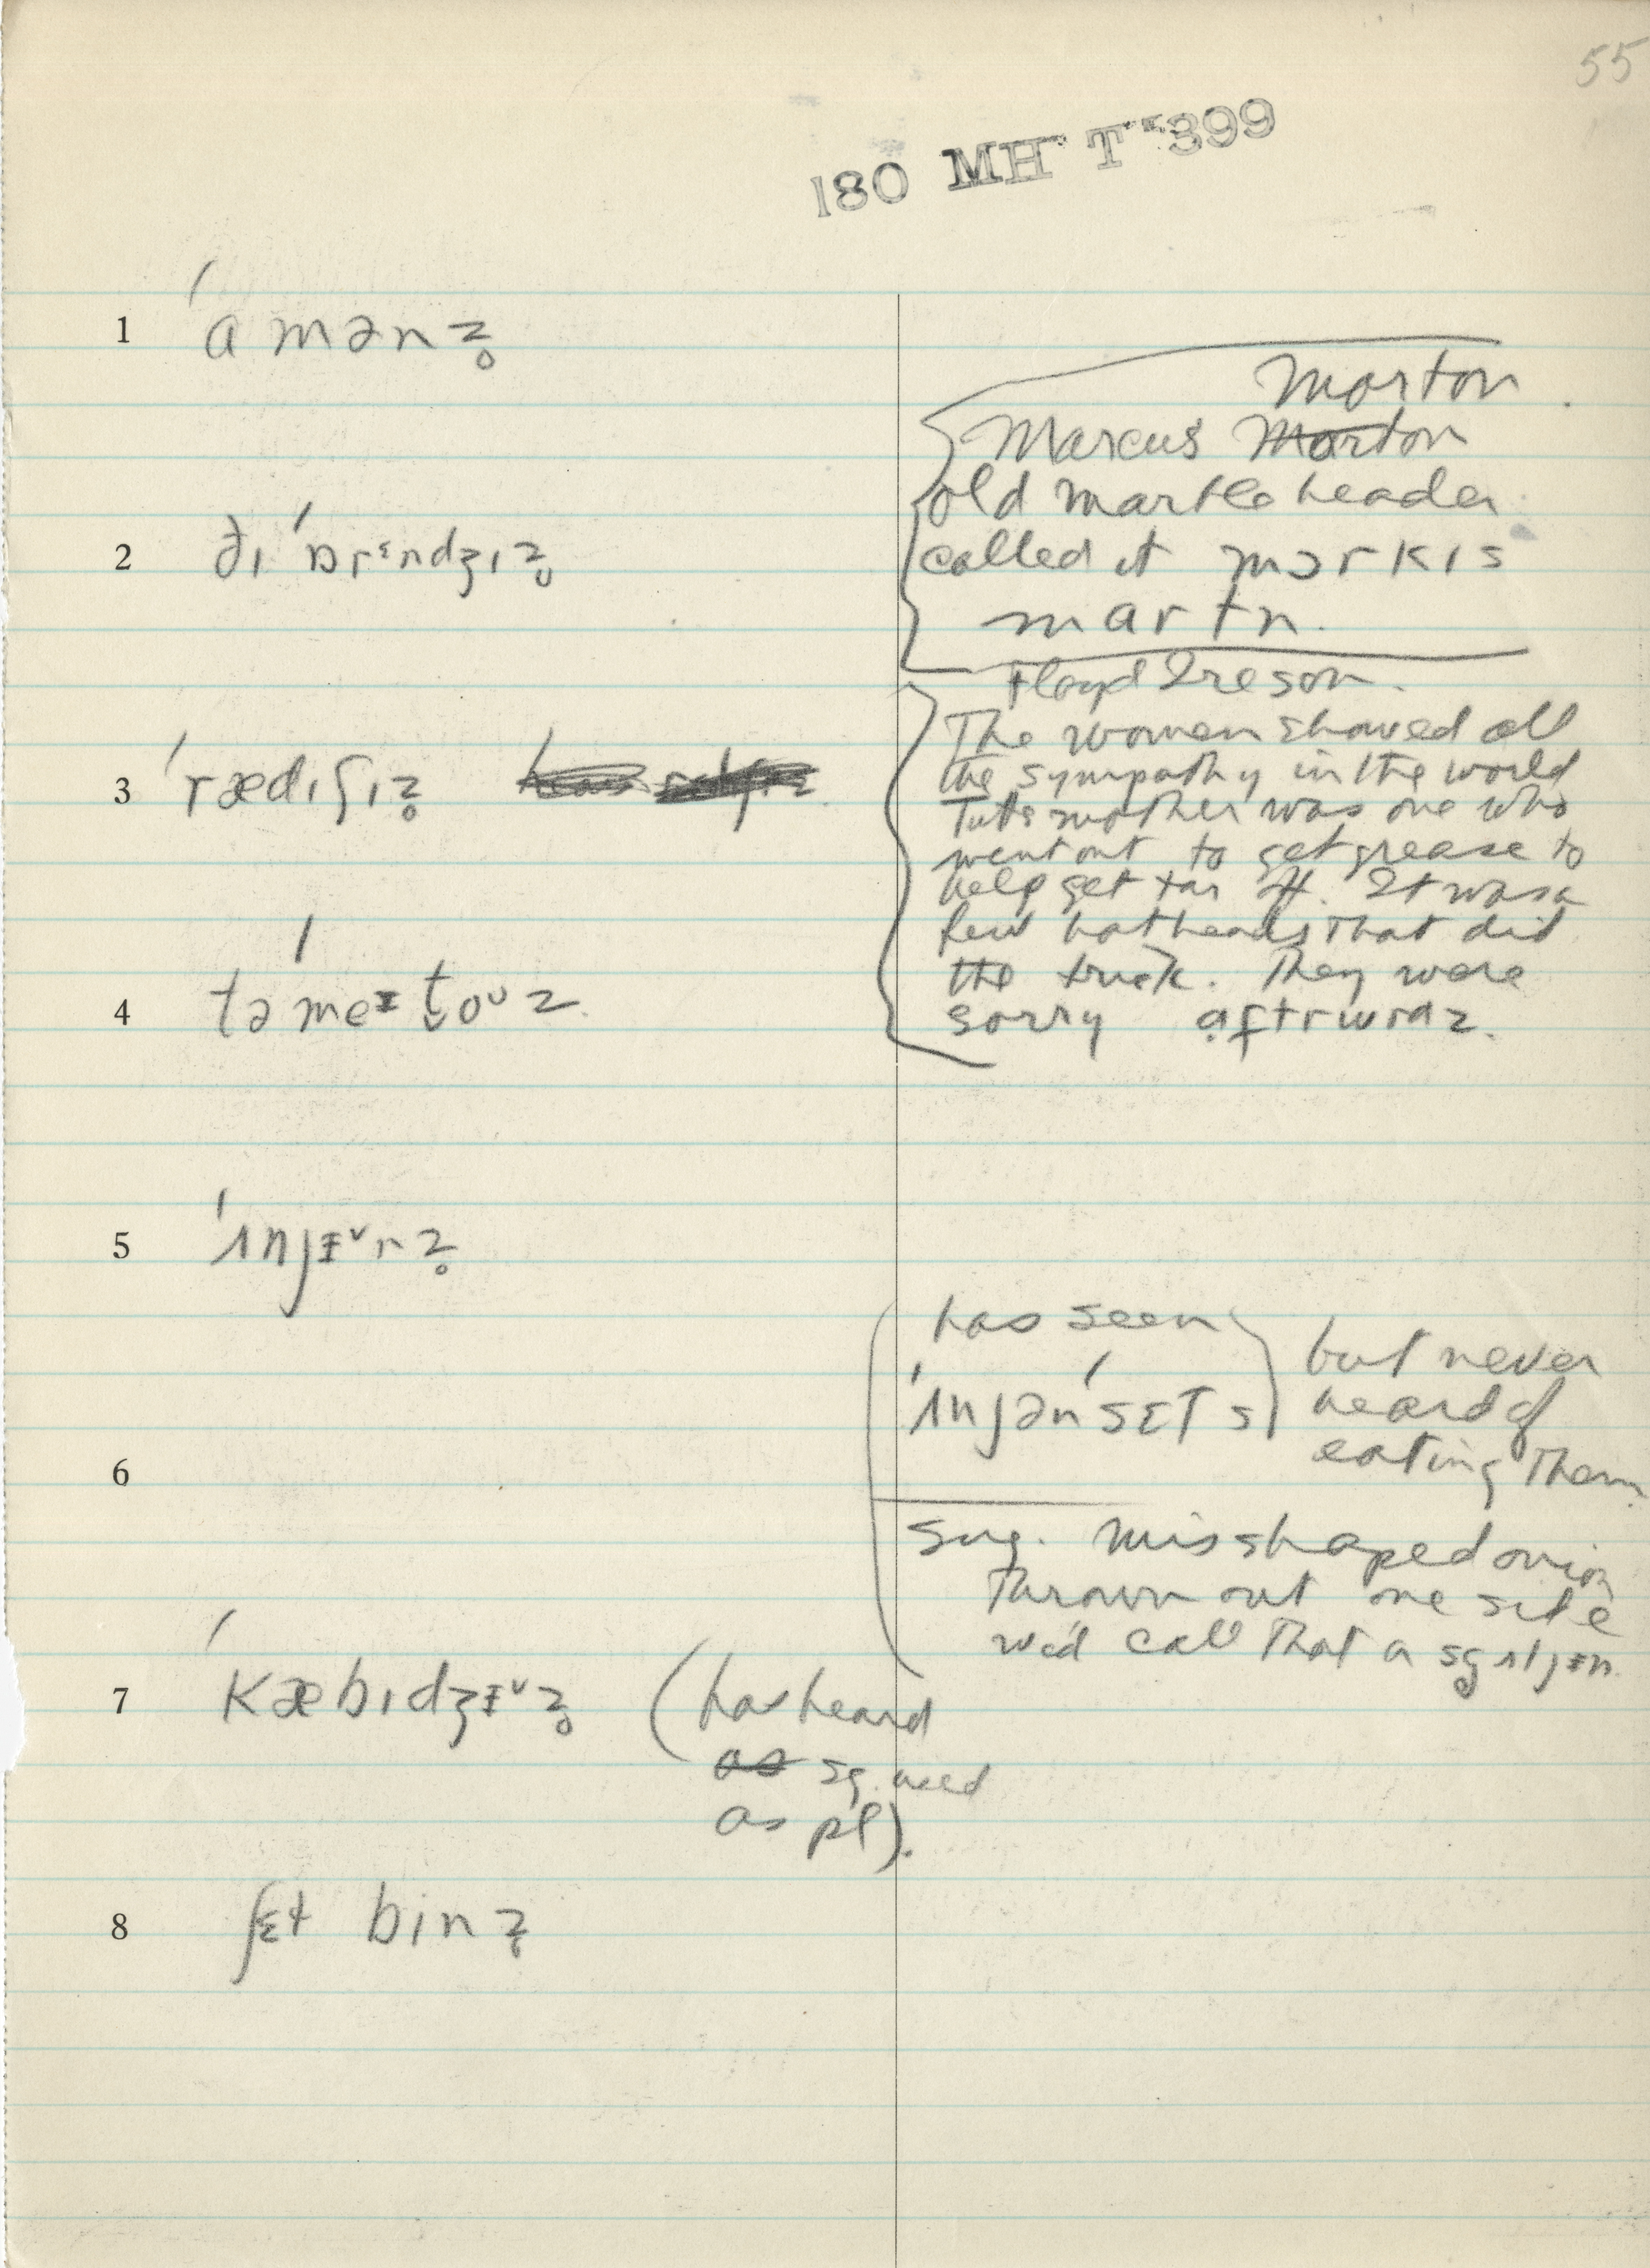 55
180 MH T 399
1 ˈɑmənz̥
2 ðɪ ˈɒrᵋndʒɪz̥
3 ˈrædɪʃɪz̥
4 təˈmeɪt̬oᵁz
5 ˈʌnjɪᵛnz̥
6
7 ˈkæbɪdʒɪᵛz̥ (has heard
as sg. used
as pl).
8 ʃɛt binz̥
Morton
Marcus Morton
old marbleheader
called it mɔrkɪs
martn.
Floyd Ireson.
The women showed all
the sympathy in the world
Tut's mother was one who
went out to get grease to
help get tar off. It was a
few hotheads that did
the trick. They were
sorry
has seen
ˈʌnjənˈsɛTs
but never
heard of
eating them.
Sug. misshaped onion
thrown out one side
we'd call that a